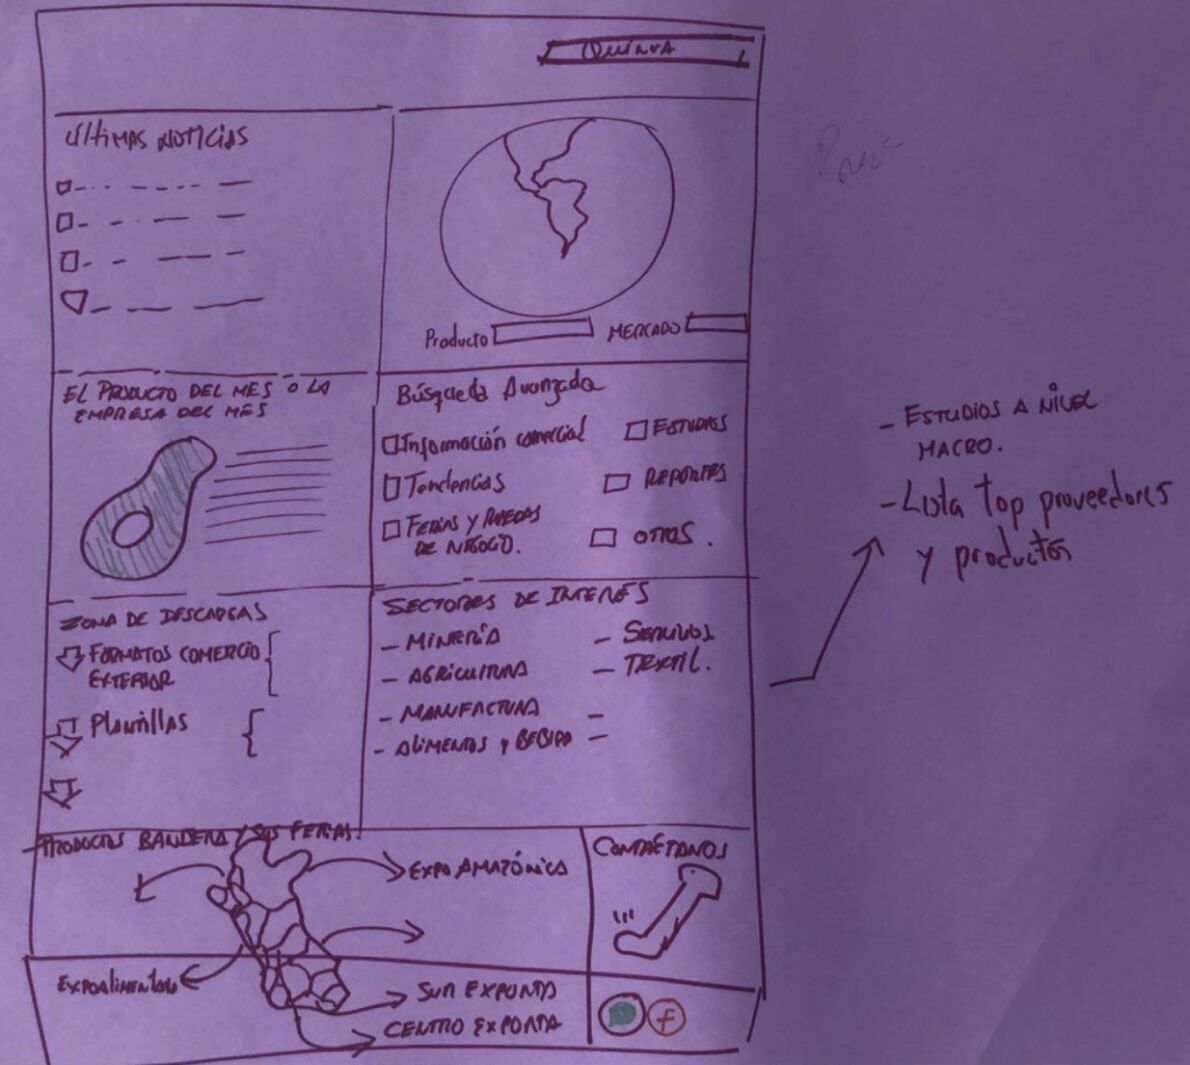 QUINUA
Ultimas NOTICIAS
Producto
MERCADO
EL PRODUCTO DEL MES O LA
EMPRESA DEL MES
Búsqueda Avanzada
Información comercial
ESTUDIOS
Tendencias
REPORTES
FERIAS Y RUEDAS
DE NEGOCIO.
OTROS.
ZONA DE DESCARGAS
FORMATOS COMERCIO
EXTERIOR
Plantillas
SECTORES DE INTERÉS
- MINERÍA
- SERVICIOS.
- AGRICULTURA
- TEXTIL.
- MANUFACTURA
-
- ALIMENTOS Y BEBIDA
-
- ESTUDIOS A NIVEL
MACRO.
- Lista top proveedores
y productos
PRODUCTOS BANDERA Y SUS FERIAS.
EXPO AMAZÓNICA
CONTÁCTANOS
EXPOALIMENTARIA
SUR EXPORTA
CENTRO EXPORTA
f